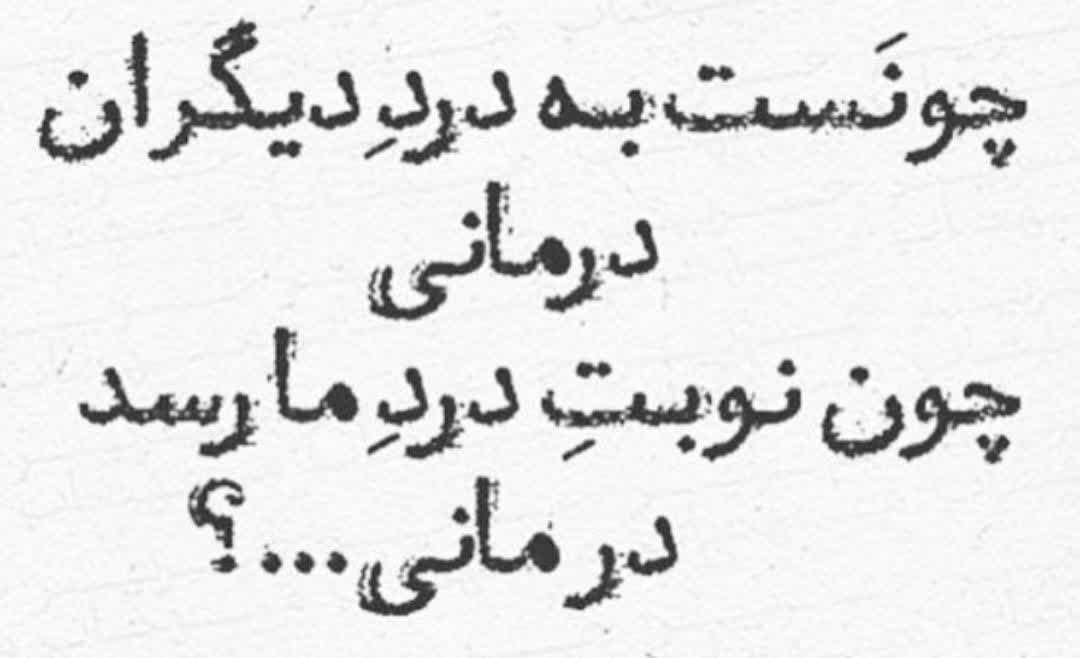 چونَست به دردِ دیگران
درمانی
چون نوبتِ دردِ ما رسد
در مانی...؟